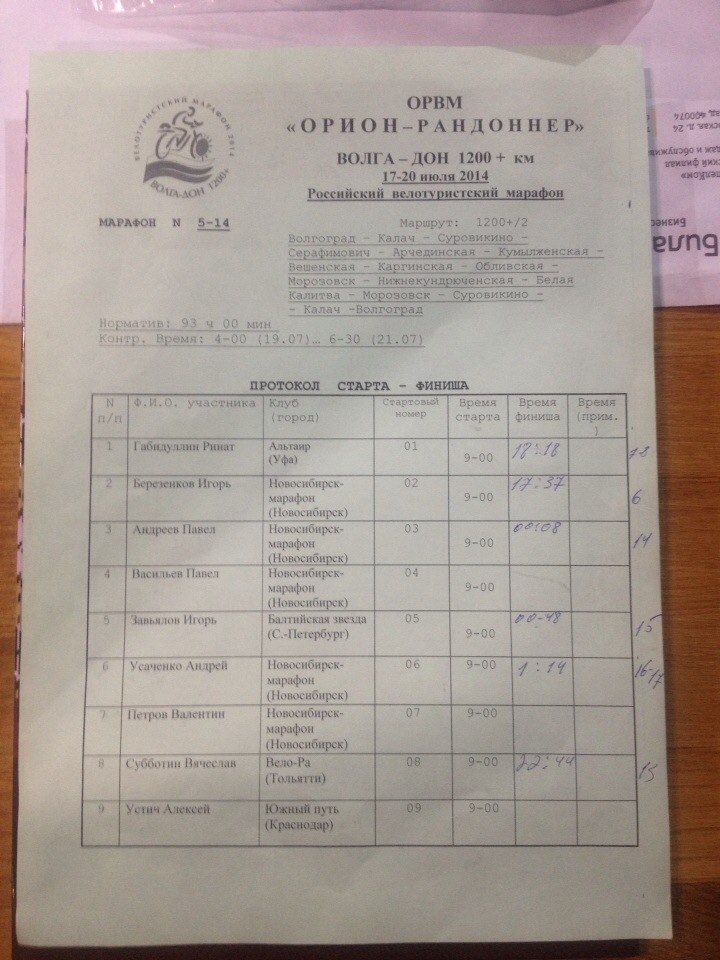 ВЕЛОТУРИСТСКИЙ МАРАФОН 2014
ВОЛГА-ДОН 1200+
ОРВМ
«ОРИОН–РАНДОННЕР»
ВОЛГА – ДОН 1200 + км
17-20 июля 2014
Российский велотуристский марафон
МАРАФОН N 5-14
Маршрут: 1200+/2
Волгоград – Калач – Суровикино –
Серафимович – Арчединская – Кумылженская –
Вешенская – Каргинская – Обливская –
Морозовск – Нижнекундрюченская – Белая
Калитва – Морозовск – Суровикино –
- Калач -Волгоград
Норматив: 93 ч 00 мин
Контр. Время: 4-00 (19.07)… 6-30 (21.07)
ПРОТОКОЛ СТАРТА – ФИНИША
N п/п Ф.И.О. участника Клуб (город) Стартовый номер Время старта Время финиша Время (прим.)
1 Габидуллин Ринат Альтаир (Уфа) 01 9-00 18:18
2 Березенков Игорь Новосибирск-марафон (Новосибирск) 02 9-00 17:37 6
3 Андреев Павел Новосибирск-марафон (Новосибирск) 03 9-00 00:08 14
4 Васильев Павел Новосибирск-марафон (Новосибирск) 04 9-00
5 Завьялов Игорь Балтийская звезда (С.-Петербург) 05 9-00 00-48 15
6 Усаченко Андрей Новосибирск-марафон (Новосибирск) 06 9-00 1:14 16-17
7 Петров Валентин Новосибирск-марафон (Новосибирск) 07 9-00
8 Субботин Вячеслав Вело-Ра (Тольятти) 08 9-00 22:44 15
9 Устич Алексей Южный путь (Краснодар) 09 9-00